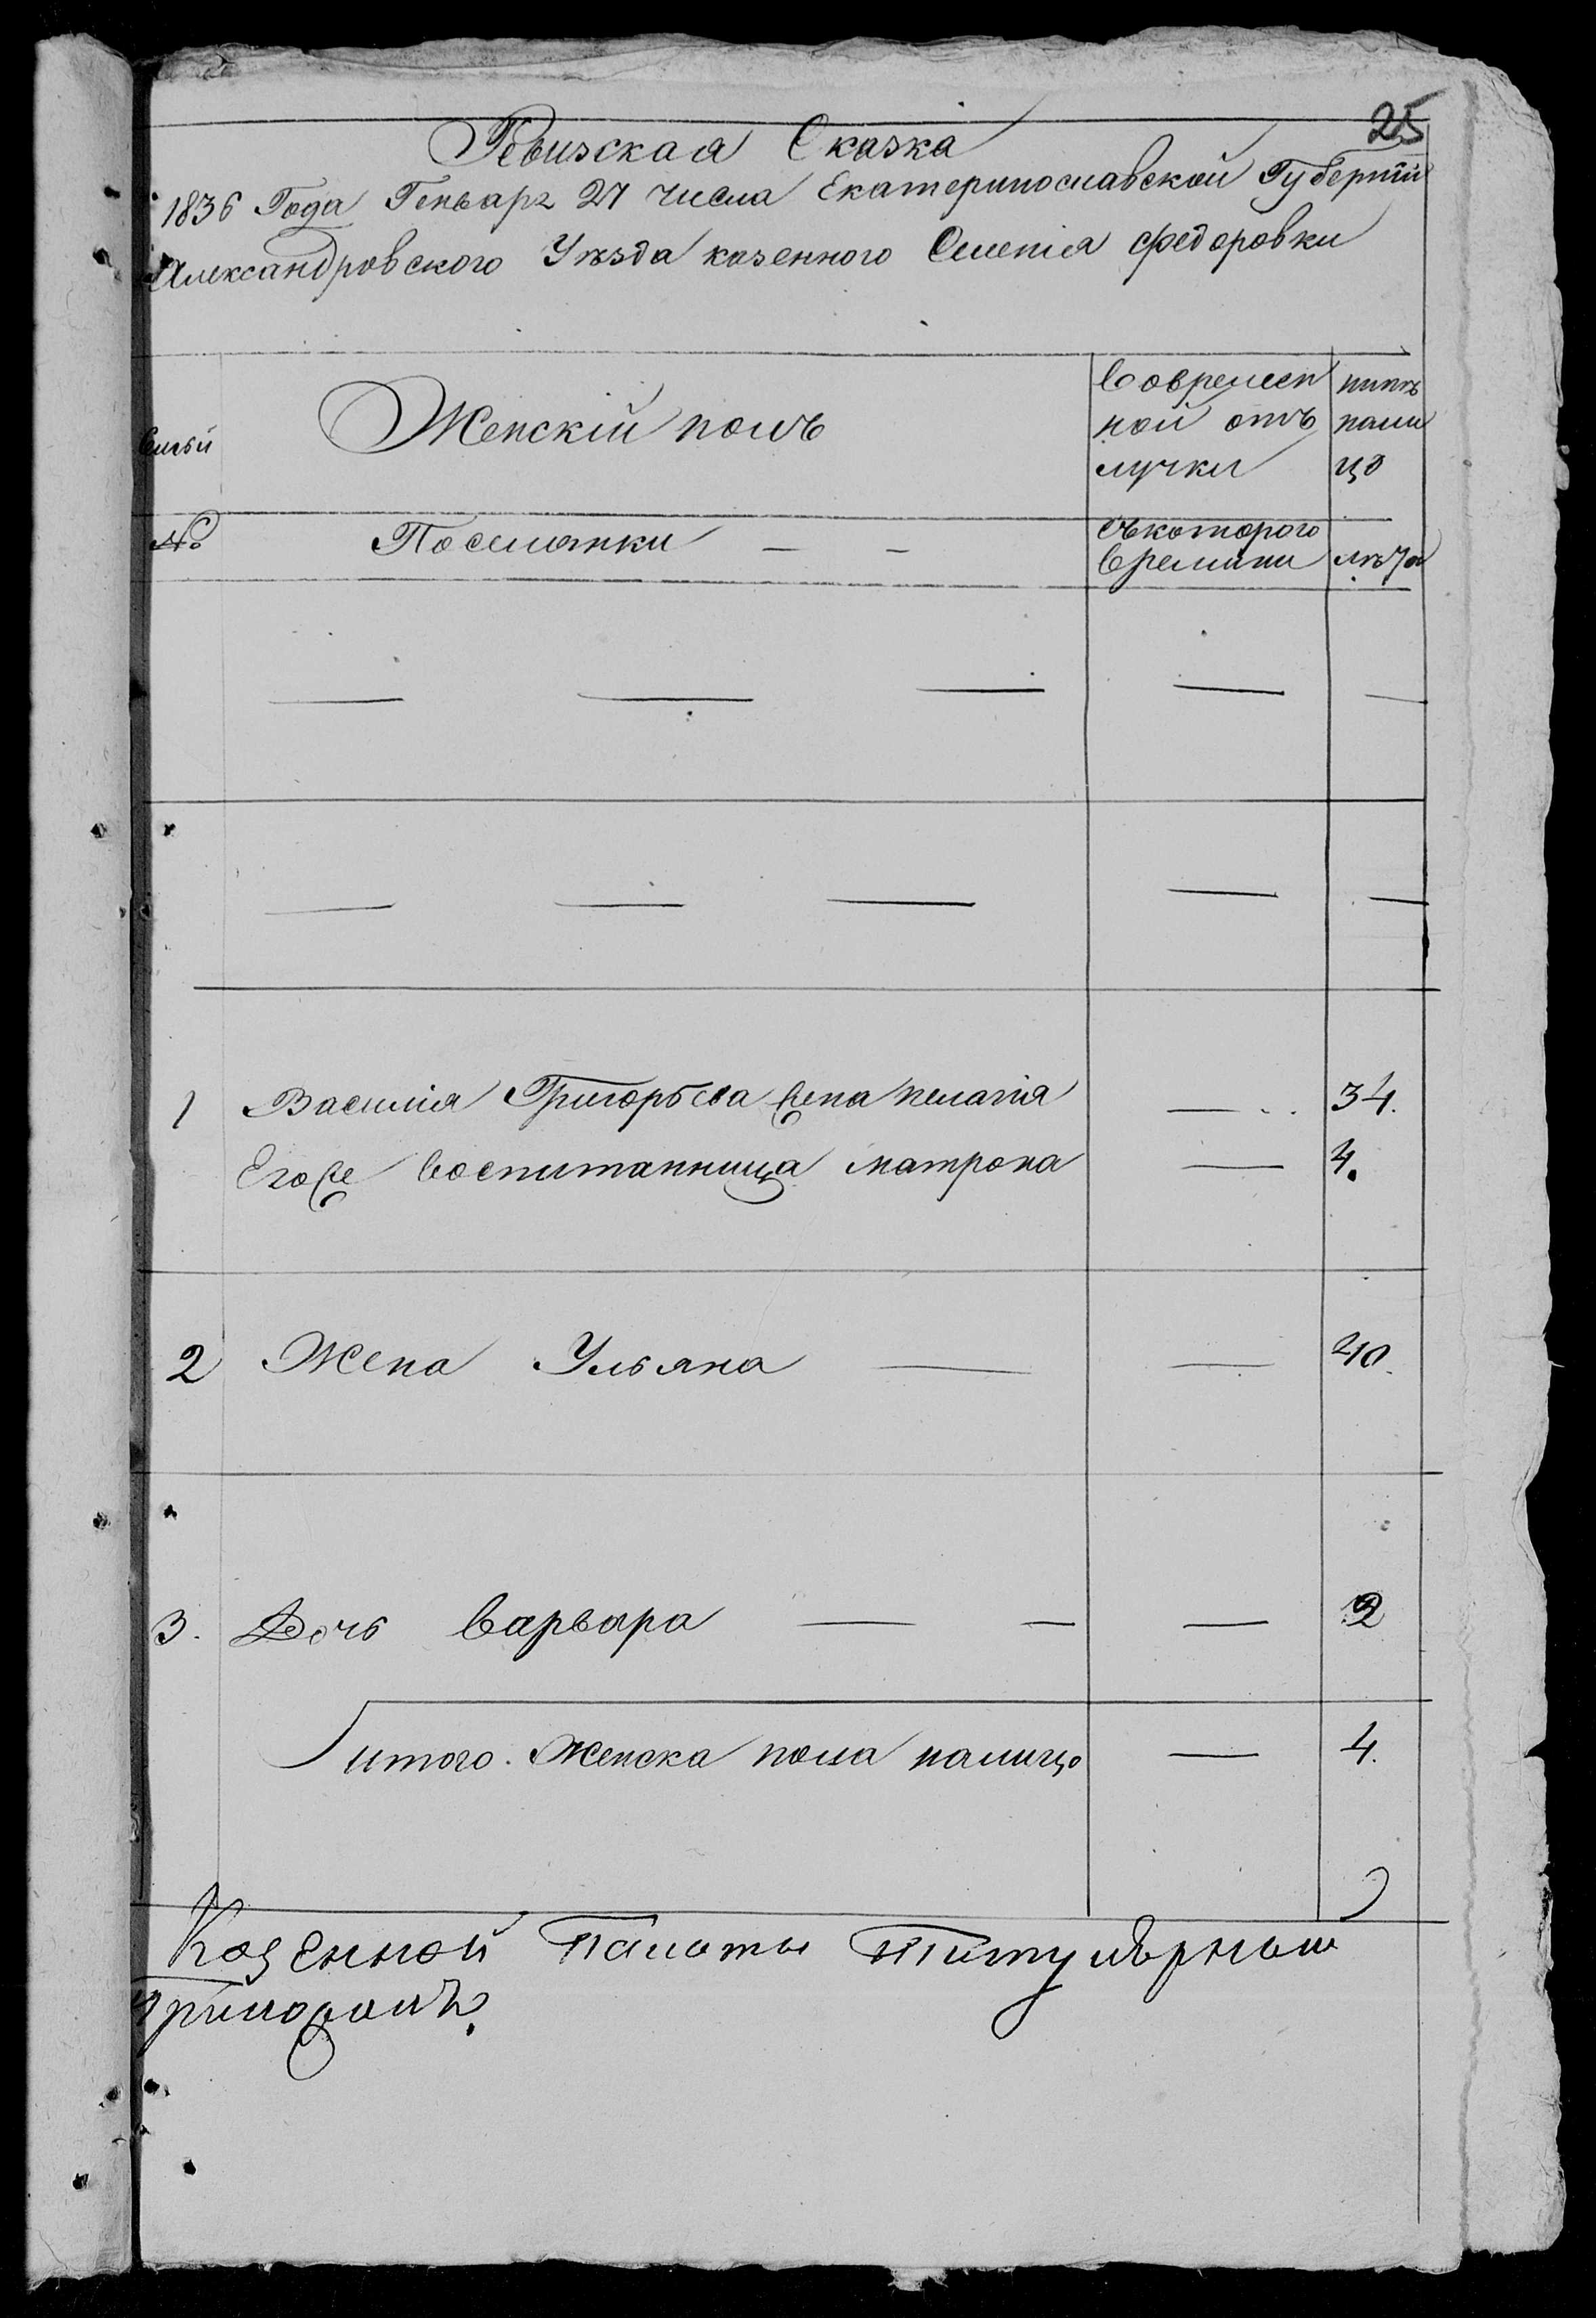 25
Ревизская Сказка
1836 Года Генваря 27 числа Екатеринославской Губерніи
Александровского Уѣзда казенного Селенія Федоровки
Семьи Женскій полъ Вовремен ной отъ лучки нынѣ нали цо
№ Поселянки — — Съкоторого времини лѣта
— — — — —
— — — — —
1 Василія Григорьева жена пелагія — 34.
Егоже воспитанница матрона — 4.
2 Жена Ульяна — — 40.
3. Дочь Варвара — — — 2
итого. Женска пола налицо — 4.
Казенной Палаты Титулярном